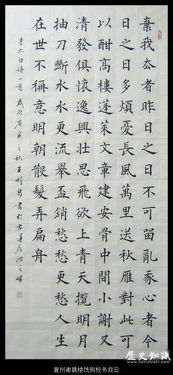 棄我去者昨日之日不可留亂我心者今
日之日多煩憂長風萬里送秋雁對此可
以酣高樓蓬萊文章建安骨中間小謝又
清發俱懷逸興壯思飛欲上青天攬明月
抽刀斷水水更流舉盃銷愁愁更愁人生
在世不稱意明朝散髮弄扁舟
李太白詩一首 歲次庚寅之秋
宣州谢朓楼饯别校书叔云